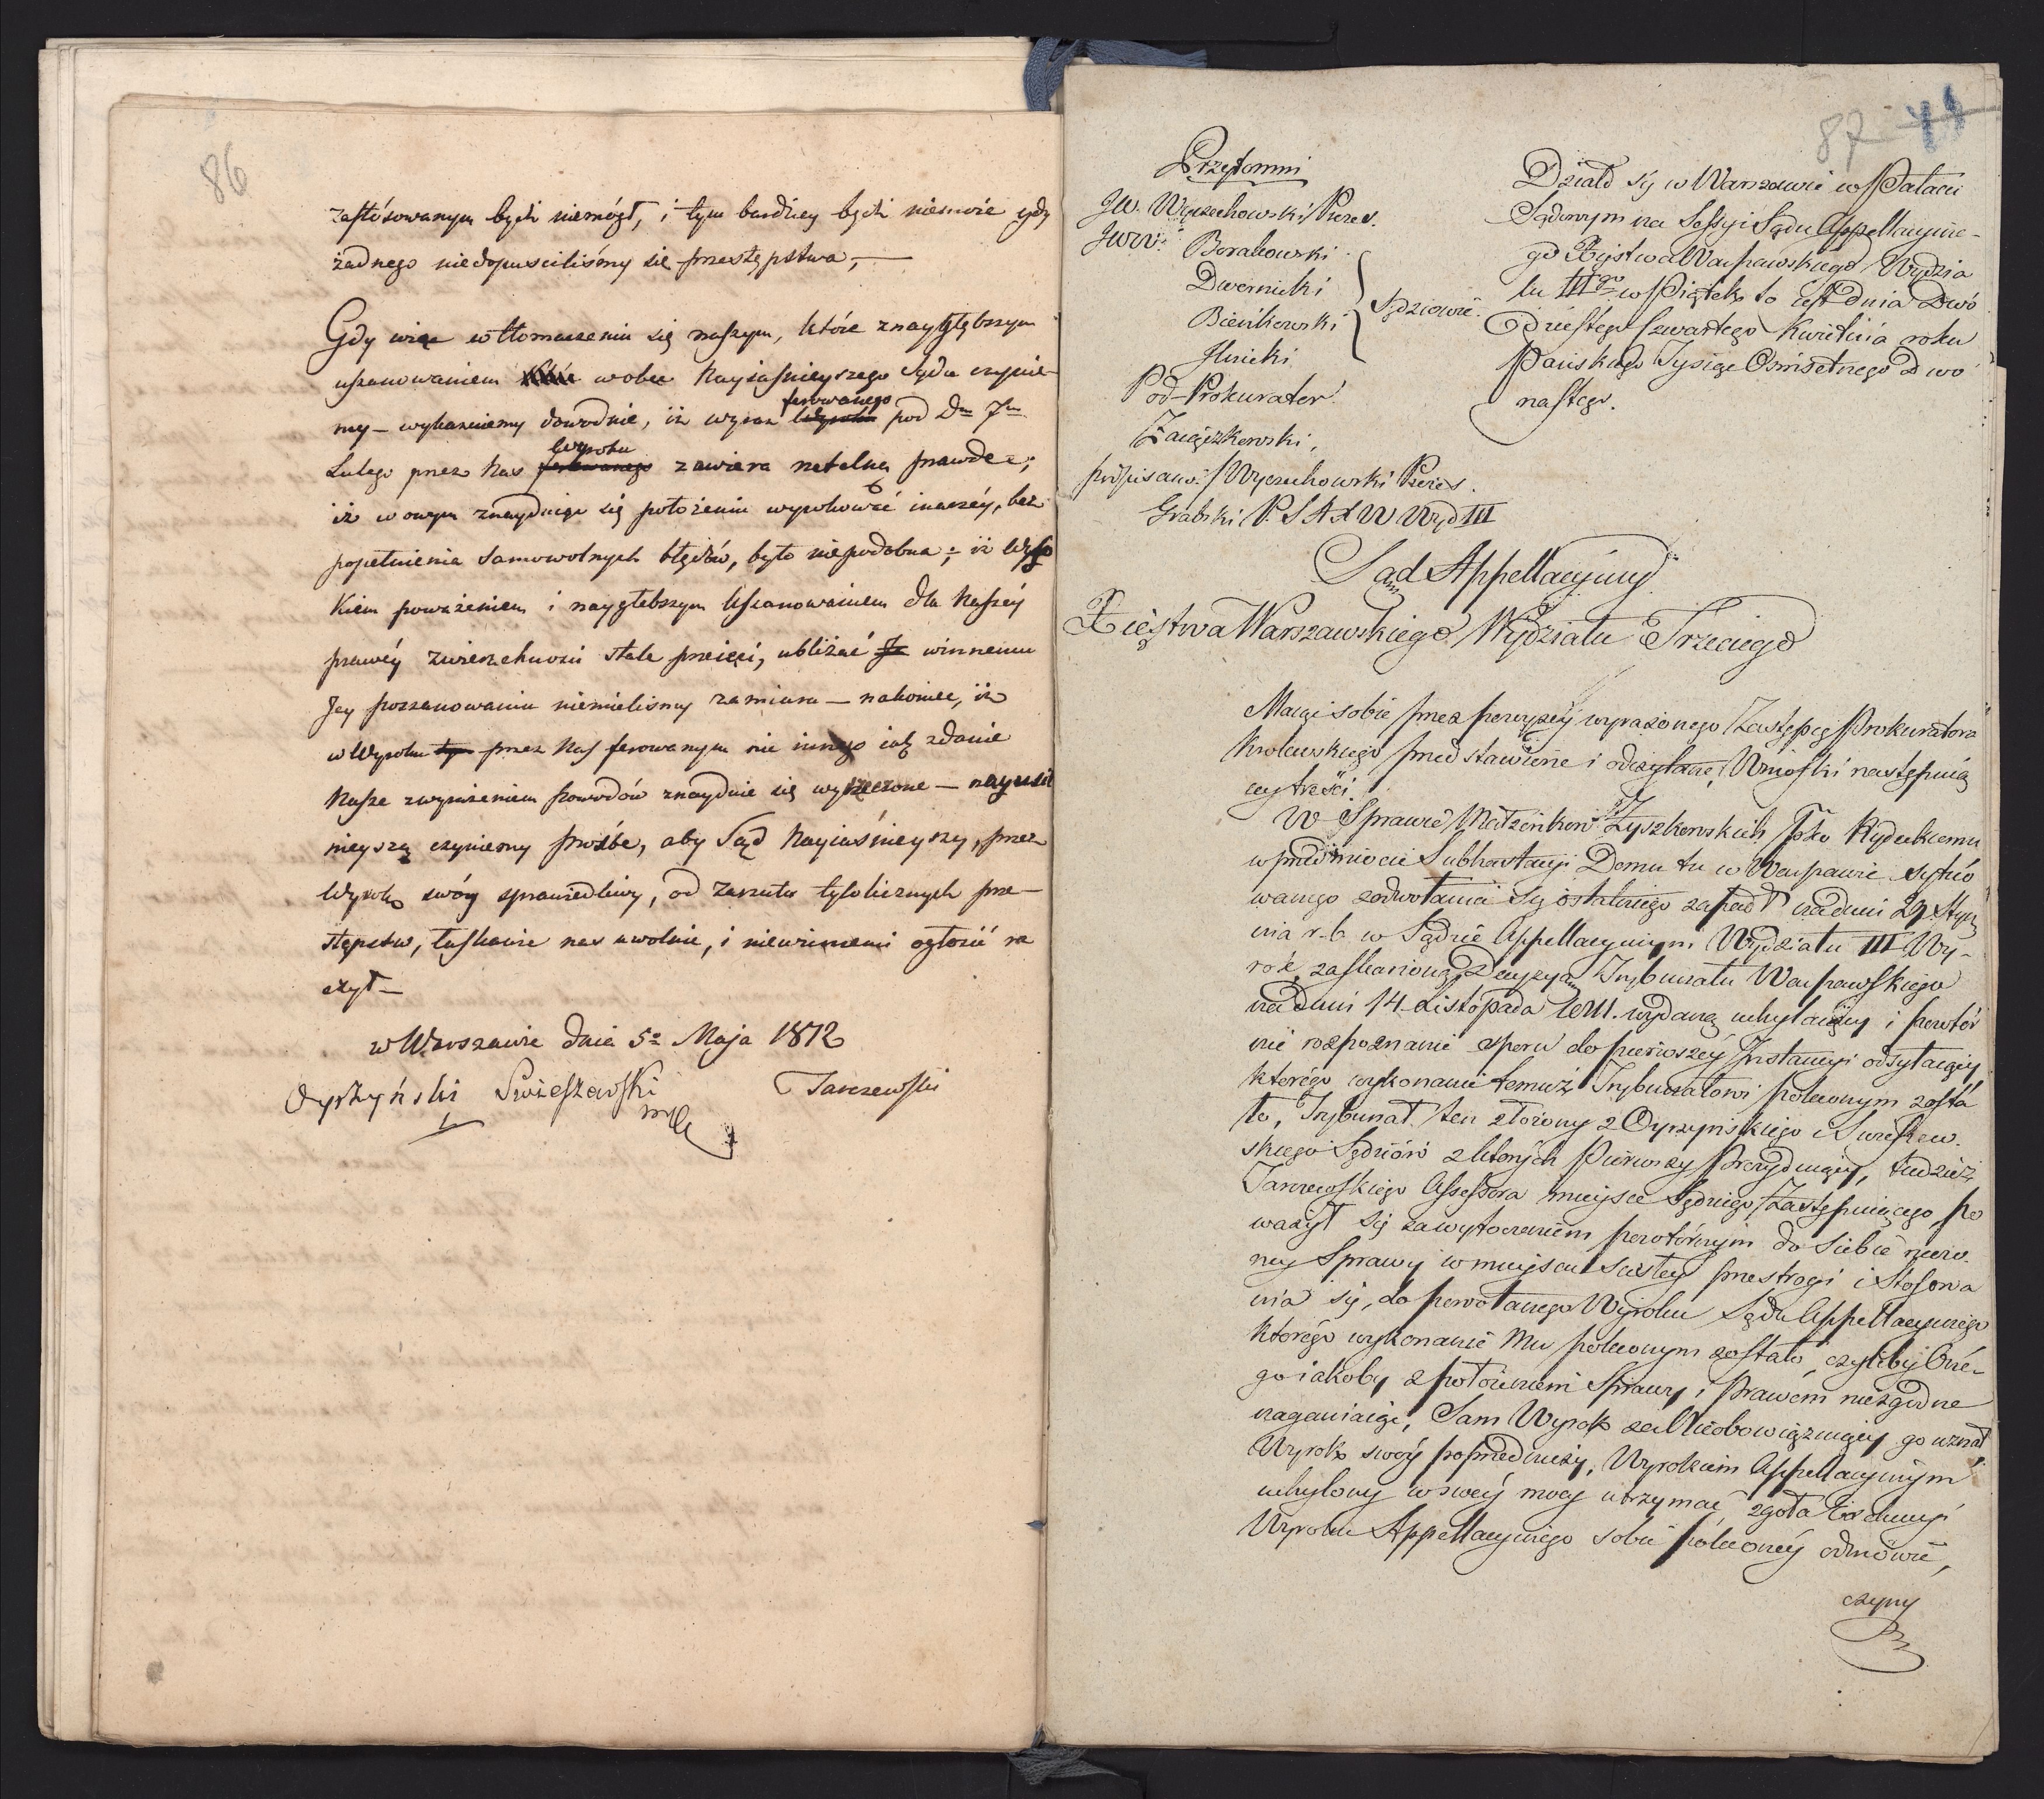 86
zastósowanym bydź niemógł, i tym bardziey bydź niemoże gdy
żadnego niedopuściliśmy się przestępstwa,—
Gdy więc w tłomaczeniu się naszym, które znaygłębszym
uszanowaniem wobec Nayiaśnieyszego Sądu czynie-
my — wykazaliemy dowodnie, iż wyraz ferowanego pod Dm 7m
Lutego przez Nas Wyroku zawiera rzetelną prawdę;
iż w owym znayduiąc się położeniu wyrokować inaczéy, bez
popełnienia samowolnych błędów, było niepodobna; iż Wyso
kiem poważeniem i naygłebszym Uszanowaniem dla Naszéy
prawéy zwierzchności stale przeięci, ubliżać winnemu
Jey poszanowaniu niemieliśmy zamiaru — nakoniec, iż
w Wyroku przez Nas ferowanym nic innego iak zdanie
Nasze zwyrażeniem powodów znayduie się wyrzeczone — nayusil
nieyszą czyniemy prośbe, aby Sąd Nayiaśnieyszy, przez
Wyrok swóy sprawiedliwy, od zarzutu tylolicznych prze-
stępstw, łaskawie nas uwolnić, i niewinnemi ogłosić ra
czył —
w Warszawie dnia 5o Maja 1812
Oyrzyński Swieszewski Tarczewski
87 44
Przytomni
JW. Wyczechowski Prezes.
JWW. Borakowski
Dwernicki
Bieńkowski
Ilnicki
Sędziowie.
Pod-Prokurator
Zaiączkowski,
podpisano: Wyczechowski Prezes.
Grabski P. S A X W Wyd III
Działo się w Warszawie w Pałacu
Sądowym na Sessyi Sądu Appellacyine-
go Xięstwa Warszawskiego Wydzia
łu IIIgo w Piątek to iest dnia Dwó
dziestego Czwartego Kwietnia roku
Pańskiego Tysiąc Ośmsetnego Dwó
nastego.
Sąd Appellacyiny
Xięstwa Warszawskiego Wydziału Trzeciego
Maiąc sobie przez powyżey wyrażonego Zastępcę Prokuratora
Krolewskiego przedstawione i odczytane Wnioski następuią
cey treści
W Sprawie Małżonków Zyszkowskich pko Rydeckiemu
w przedmiocie Subhastacyi Domu tu w Warszawie sytuo
wanego zodwołania się ostatniego zapadł nadniu 29 Stycz
nia r. b. w Sądzie Appellacyinym Wydziału III Wy-
rok, zaskarżoną Decyzyą Trybunału Warszawskiego
nadniu 14 Listopada 1811. wydaną uchylaiący i powtór
nie rozpoznanie sporu do pierwszéy Instancyi odsyłaiący
którégo wykonanie temuż Trybunałowi poleconym zosta
ło, Trybunał ten złożony z Oyrzyńskiego i Swieszew-
skiego Sędziów z których Pierwszy Prezyduiący, tudzież
Tarczewskiego Assessora mieysce Sędziego Zastępuiącego po
ważył się zawytoczeniem powtórnym do siebie rzeczo-
ney Sprawy w mieyscu ścisłey przestrogi i Stosowa
nia się, do powołanego Wyroku Sądu Appellacyinego
którégo wykonanie Mu poleconym zostało, czyliby One-
go iakoby z położeniem Sprawy i Prawem niezgodne
naganiaiąc, Sam Wyrok za Nieobowiązuiący go uznał
Wyrok swóy poprzedniczy, Wyrokiem Appellacyinym
uchylony w swéy mocy utrzymać zgoła
Wyroku Appellacyinego sobie poleconéy odmówić,
czyny